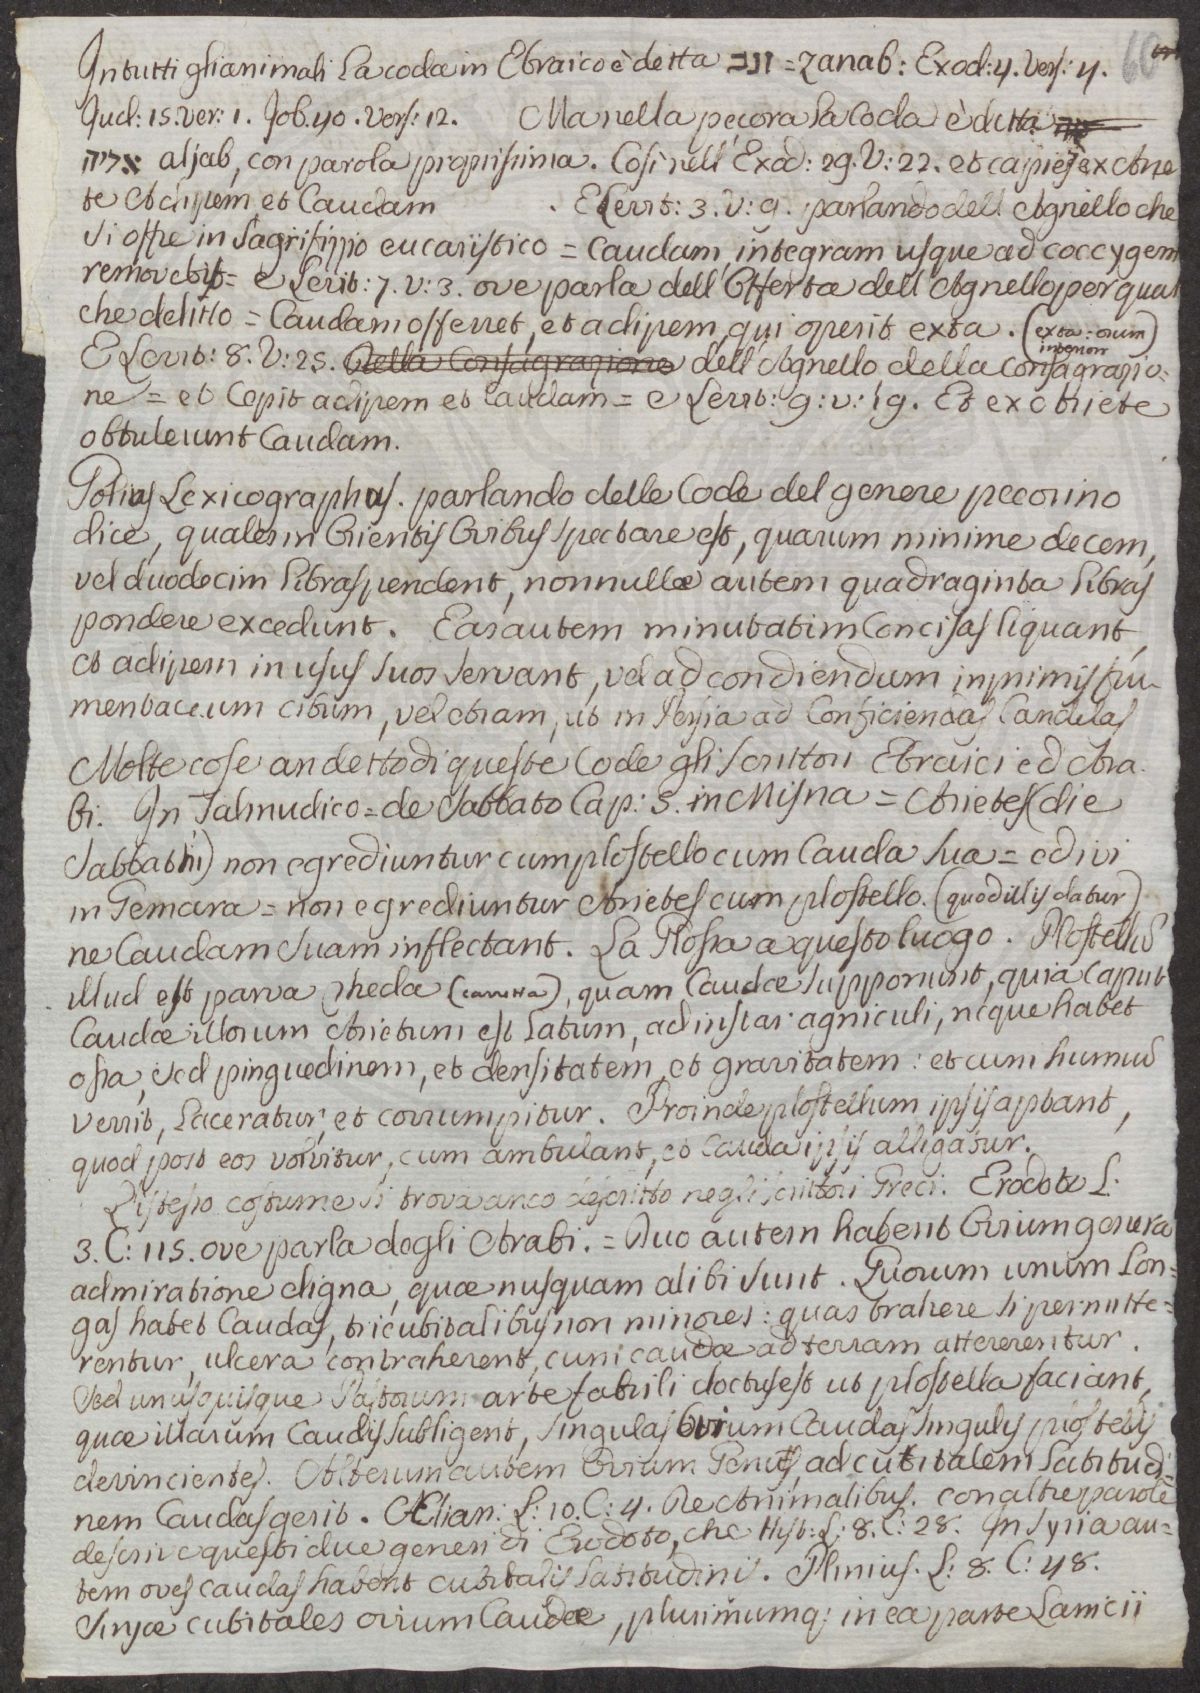 In tutti gli animali la coda in Ebraico è detta זנב = zanab: Exod: 4. Vers: 4. 60
Jud: 15. ver: 1. Job. 40. Vers: 12. Ma nella pecora la Coda è detta
אליה aljab, con parola propriissima. Così nell' Exod: 29. V: 22. et capies ex Arie
te Adipem et Caudam . E Levit: 3. V: 9. parlando dell' Agnello che
si offre in Sagrifizzio eucaristico = Caudam integram usque ad coccygem
removebit = e Levit: 7. V: 3. ove parla dell' Offerta dell' Agnello per qual
che delitto = Caudam offerret, et adipem, qui operit exta. (exta: orum interiori)
E Levit: 8. V: 25. Nella Consagrazione dell' Agnello della Consagrazio-
ne = et Cepit adipem et Caudam = e Levit: 9: v: 19. Et ex Ariete
obtulerunt Caudam.
Golius Lexicographus. parlando delle Code del genere pecorino
dice, quales in Orientis Ovibus spectare est, quarum minime decem,
vel duodecim libras pendent, nonnullæ autem quadraginta libras
pondere excedunt. Eas autem minutatim Concisas liquant,
et adipem in usus suos servant, vel ad condiendum inprimis fru-
mentaceum cibum, vel etiam, ut in Persia ad Conficiendas Candelas
Molte cose an detto di queste Code gli scrittori Ebraici ed Ara-
bi. In Talmudico = de Sabbato Cap: 5. in Misna = Arietes (die
Sabbathi) non egrediuntur cum plostello cum Cauda sua = ed ivi
in Gemara = non egrediuntur Arietes cum plostello. (quod illis datur)
ne Caudam suam inflectant. La Glossa a questo luogo. Plostellũ
illud est parva rheda (carretta), quam Caudæ supponunt, quia caput
Caudæ illorum Arietum est latum, ad instar agniculi, neque habet
ossa, sed pinguedinem, et densitatem, et gravitatem: et cum humũ
verrit, laceratur, et corrumpitur. Proinde plostellum ipsis aptant,
quod post eos volvitur, cum ambulant, et Cauda ipsis alligatur.
L'istesso costume si trova anco descritto negli scrittori Greci. Erodoto L:
3. C: 115. ove parla degli Arabi. = Duo autem habent Ovium genera
admiratione digna, quæ nusquam alibi sunt. Quorum unum lon-
gas habet Caudas, tricubitalibus non minores: quas trahere si permitte=
rentur, ulcera contraherent, cum caudæ ad terram attererentur.
Sed unusquisque Pastorum arte fabrili doctus est ut plostella faciant,
quæ illarum Caudis subligent, singulas Ovium Caudas singulis plostellis
devincientes. Alterum autem Ovium Genus, ad cubitalem latitudi=
nem Caudas gerit. Ælian: L: 10. C: 4. De Animalibus. con altre parole
descrive questi due generi di Erodoto, che Hist: L: 8. C: 28. In Syria au=
tem oves caudas habent cubitalis latitudinis. Plinius. L: 8. C: 48.
Syriæ cubitales ovium Caudæ, plurimumq: in ea parte Lanicii